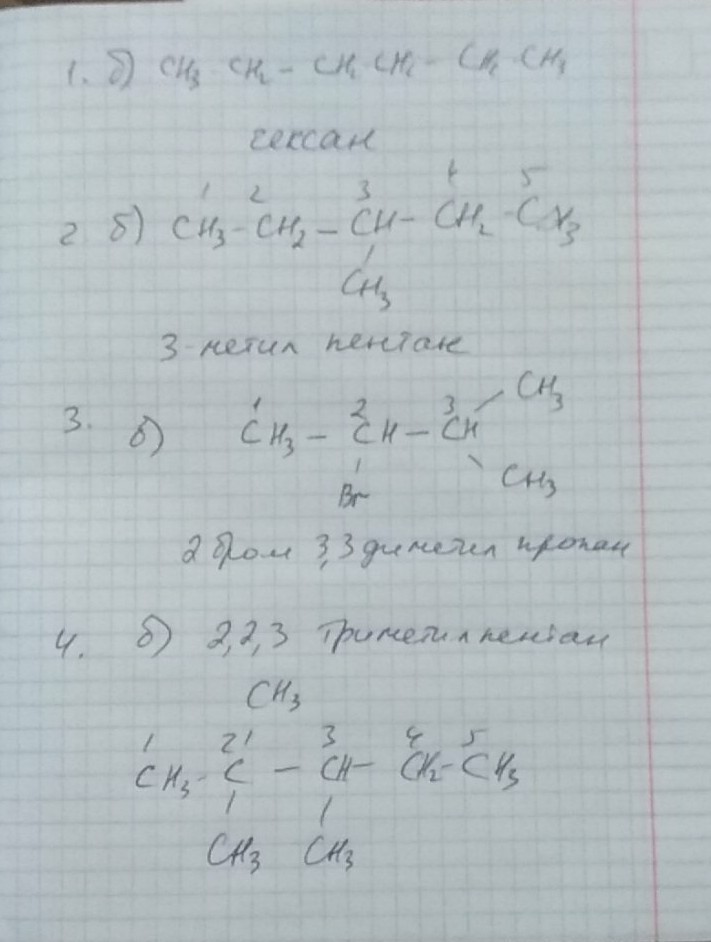 1. б) CH3 CH2 – CH2 CH2 – CH2 CH3
гексан
1 2 3 4 5
2 б) CH3 – CH2 – CH – CH2 – CH3
CH3
3-метил пентан
CH3
1 2 3
3. б) CH3 – CH – CH
Br CH3
2 бром 3,3 диметил пропан
4. б) 2,2,3 триметилпентан
CH3
1 2 3 4 5
CH3 – C – CH – CH2 – CH3
CH3 CH3